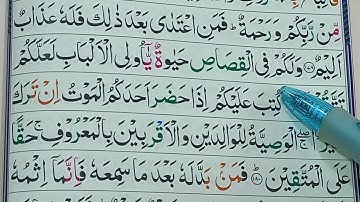 مِّنۡ رَّبِّكُمۡ وَرَحۡمَةٌ ؕ فَمَنِ اعۡتَدٰى بَعۡدَ ذٰلِكَ فَلَهٗ عَذَابٌ
اَلِيۡمٌ ﴿۱۷۸﴾ وَلَكُمۡ فِى الۡقِصَاصِ حَيٰوةٌ يّٰۤاُولِى الۡاَلۡبَابِ لَعَلَّكُمۡ
تَتَّقُوۡنَ كُتِبَ عَلَيۡكُمۡ اِذَا حَضَرَ اَحَدَكُمُ الۡمَوۡتُ اِنۡ تَرَكَ
خَيۡرَا ۖۚ اۨلۡوَصِيَّةُ لِلۡوَالِدَيۡنِ وَالۡاَقۡرَبِيۡنَ بِالۡمَعۡرُوۡفِ ۚ حَقًّا
عَلَى الۡمُتَّقِيۡنَ ﴿۱۸۰﴾ فَمَنۡۢ بَدَّلَهٗ بَعۡدَ مَا سَمِعَهٗ فَاِنَّمَاۤ اِثۡمُهٗ